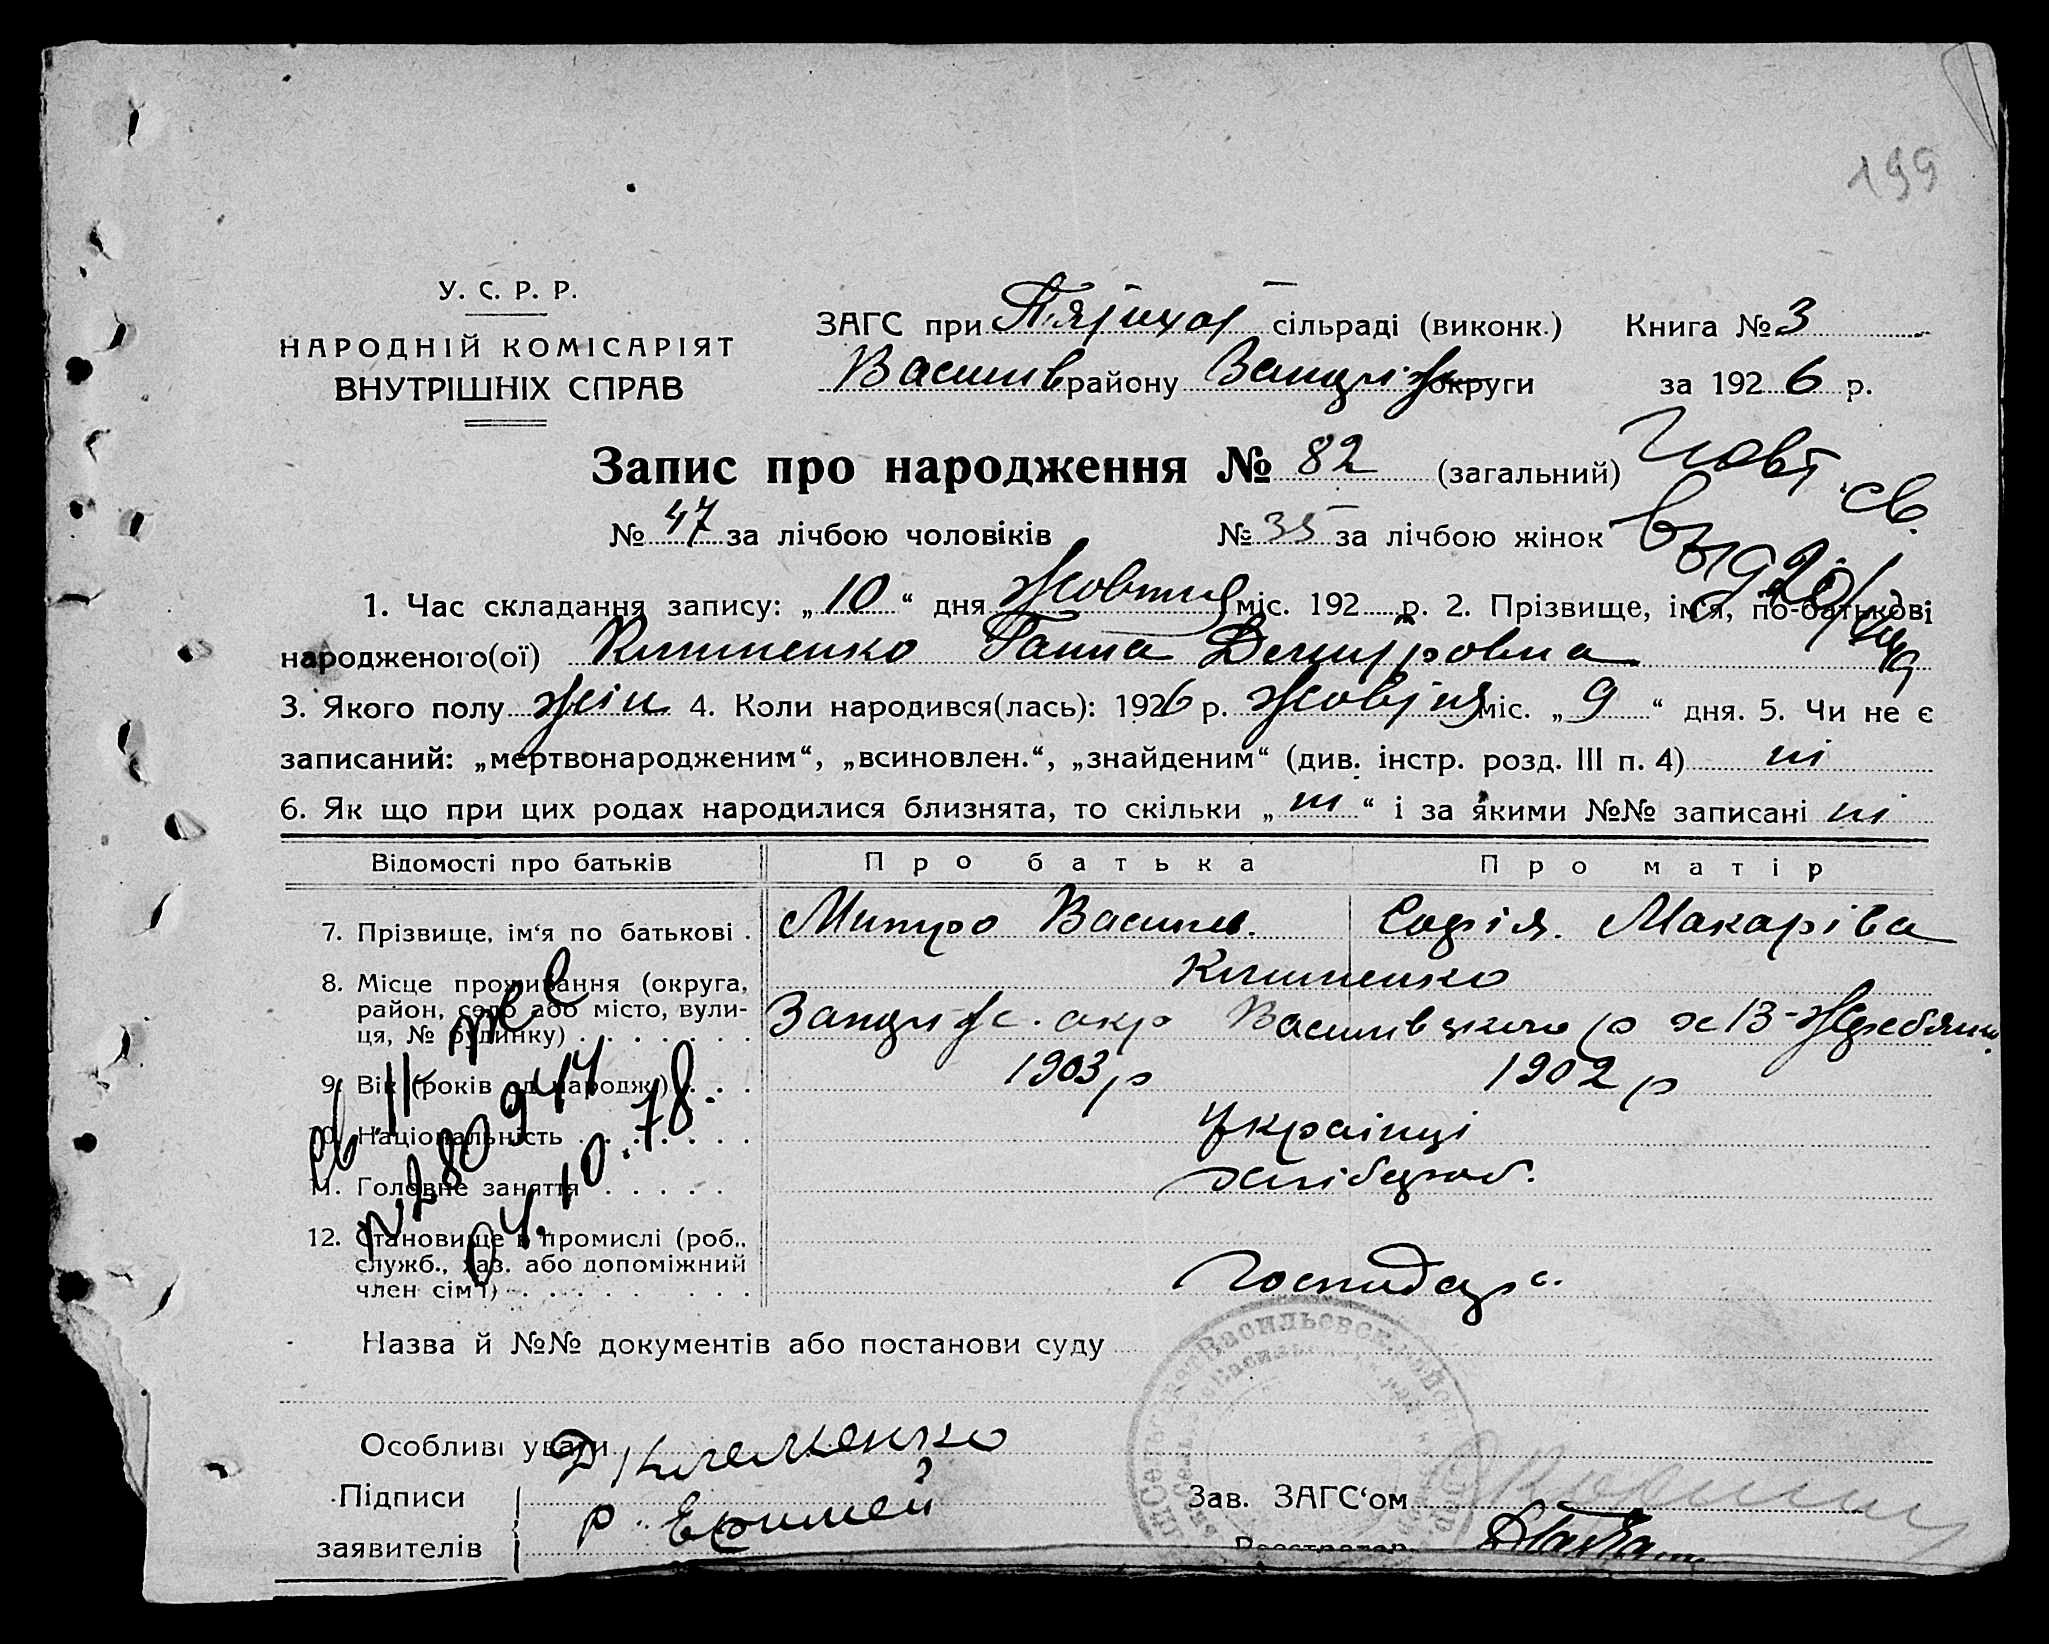 199
У. С. Р. Р.
НАРОДНІЙ КОМІСАРІЯТ
ВНУТРІШНІХ СПРАВ
ЗАГС при П'ятихат сільраді (виконк.) Книга № 3
Василів району Запоріж округи за 1926 р.
Запис про народження № 82 (загальний)
№ 47 за лічбою чоловіків № 35 за лічбою жінок
св.
1. Час складання запису: „10“ дня Жовтня міс. 192 р. 2. Прізвище, ім'я, по-батькові
народженого(ої) Клименко Ганна Демитровна
3. Якого полу жін 4. Коли народився(лась): 1926 р. Жовтня міс. „9“ дня. 5. Чи не є
записаний: „мертвонародженим“, „всиновлен.“, „знайденим“ (див. інстр. розд. III п. 4) ні
6. Як що при цих родах народилися близнята, то скільки „ні“ і за якими №№ записані ні
Відомості про батьків Про батька Про матір
7. Прізвище, ім‘я по батькові . Митро Васильв. Софія. Макаріва
Клименко
8. Місце проживання (округа,
район, село або місто, вули-
ця, № будинку) . . . . . . . Запоріж. окр Васиивського р с В-Жеребянки
9. Вік (років од народж.) . . . 1903 р 1902 р
10. Національність . . . . . . . Українці
11. Головне заняття . . . . . хлібороб.
12. Становище в промислі (роб.,
служб., хаз. або допоміжний
член сім'ї) . . . . . . . . Господар с.
Назва й №№ документів або постанови суду
Особливі уваги
Д Клеменко
Підписи
заявителів
Р
Зав. ЗАГС‘ом
Реєстратор